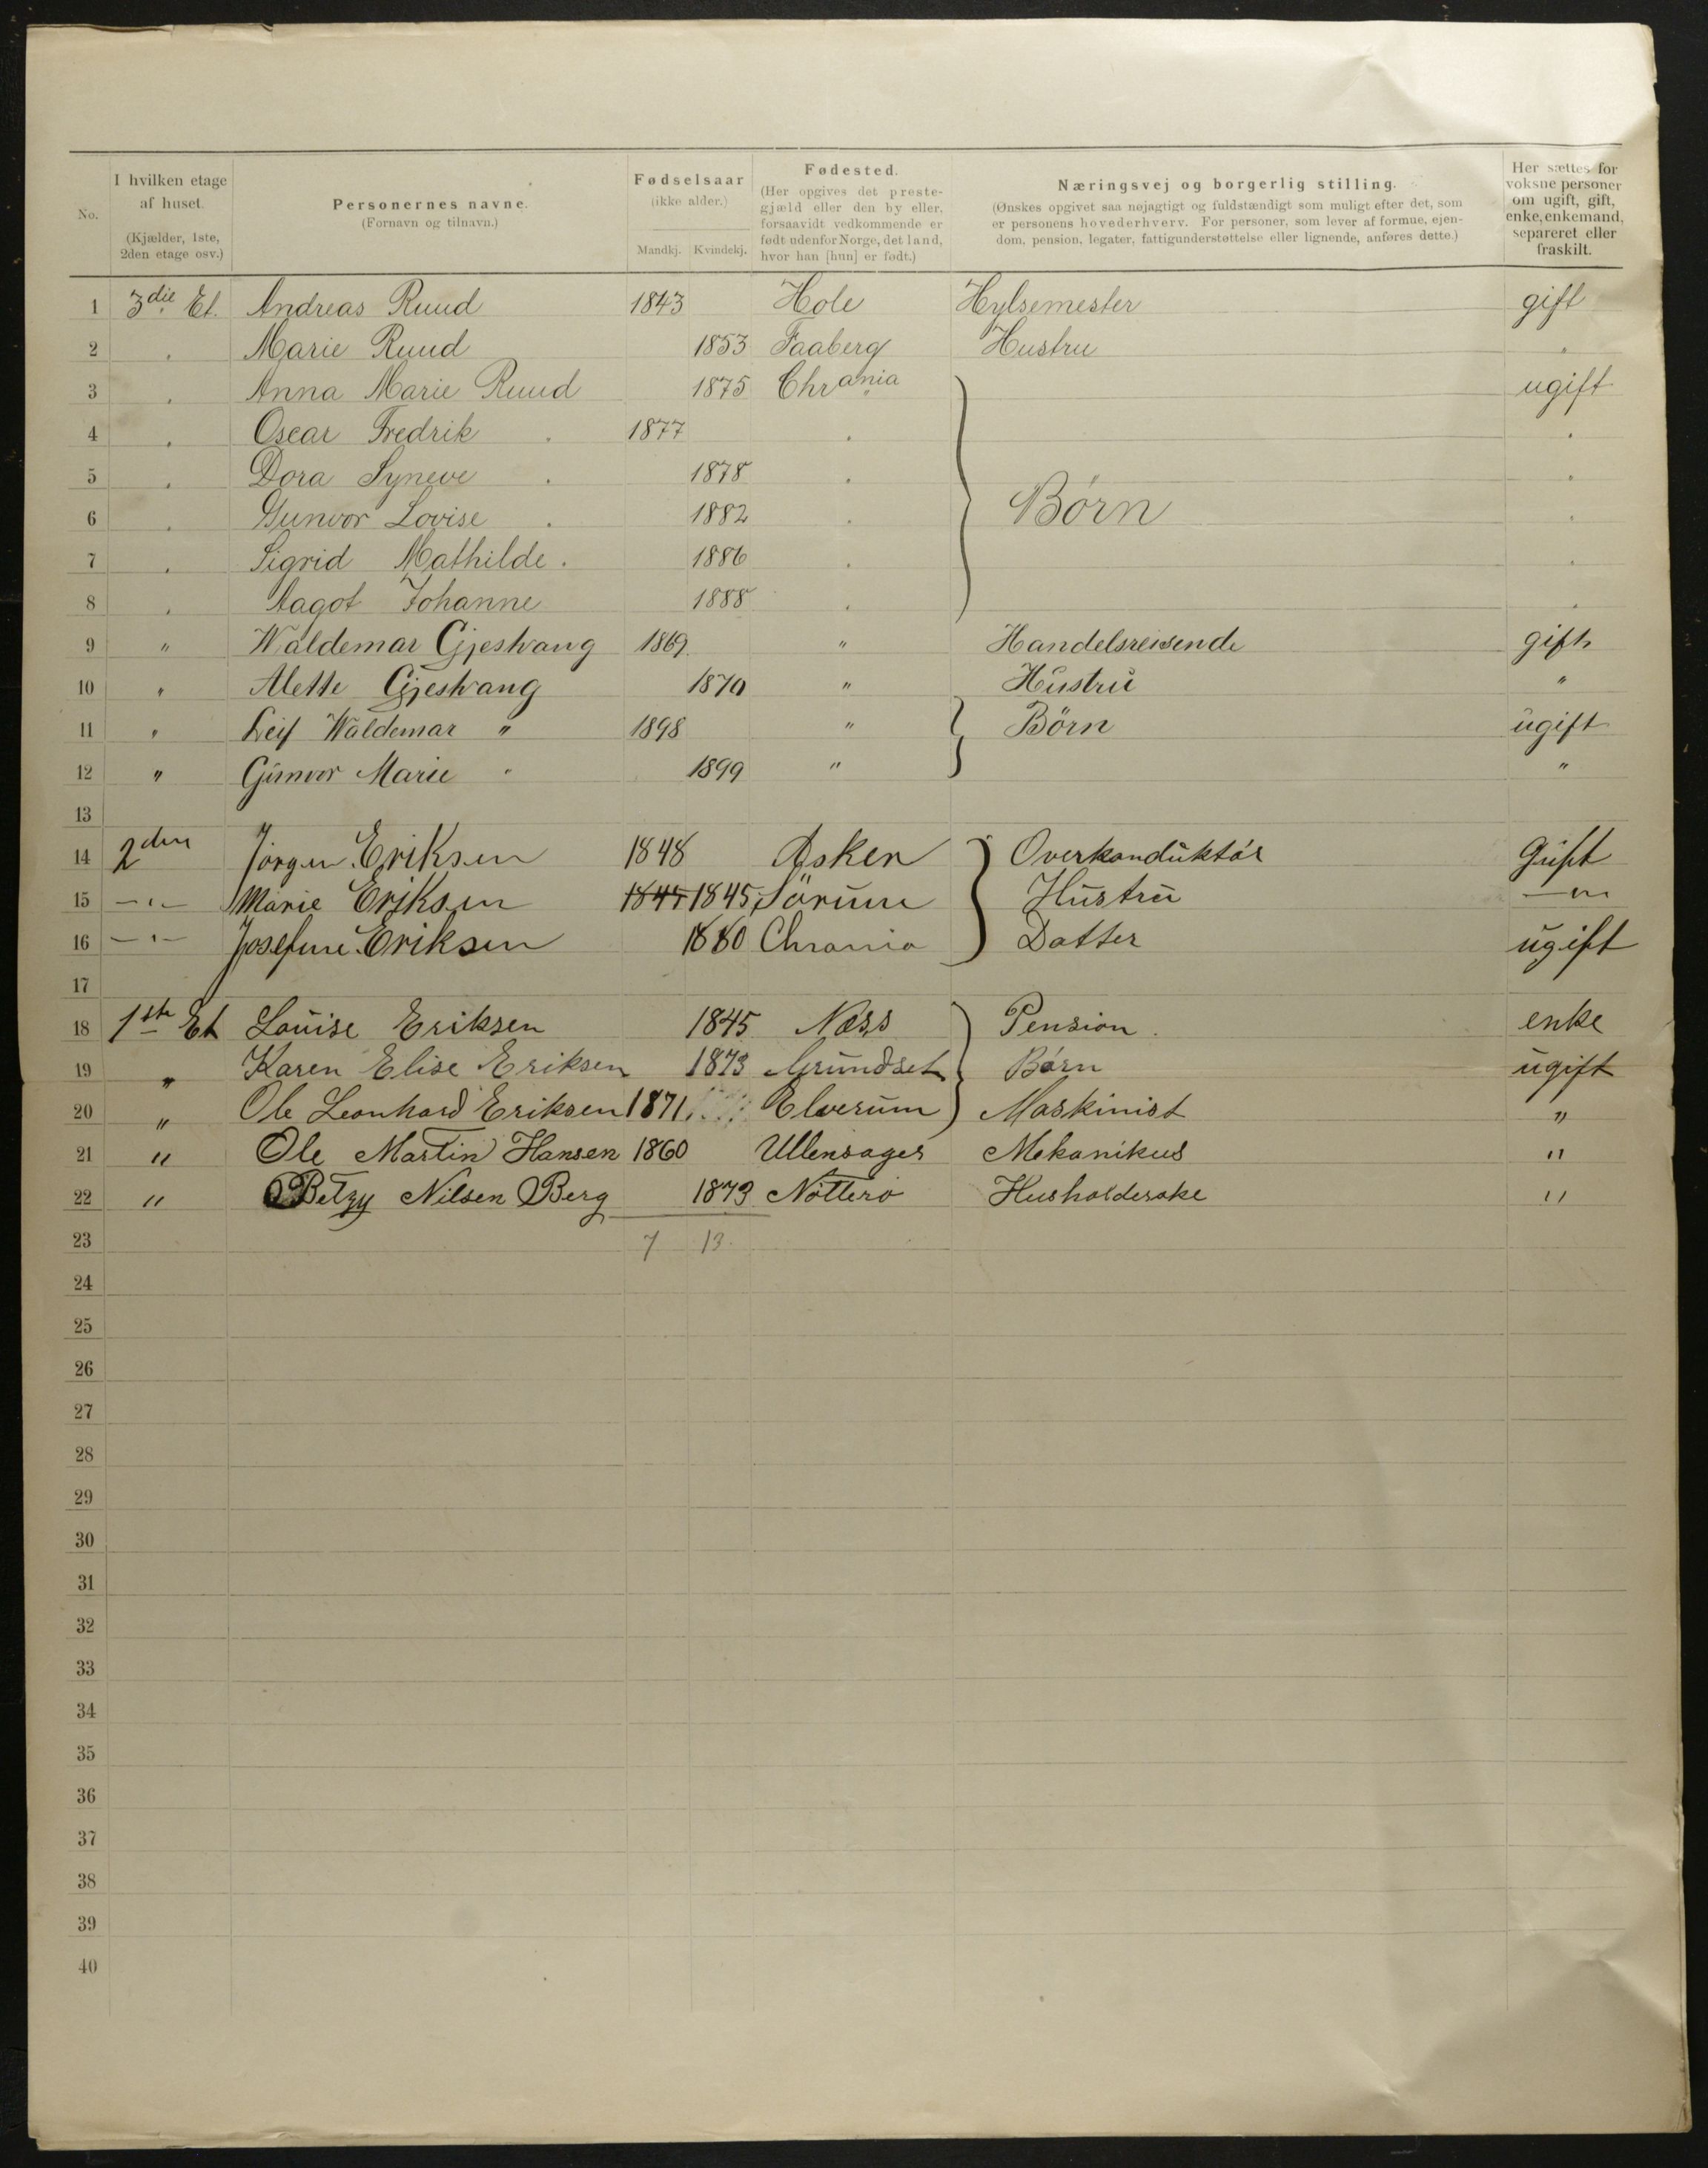 No.
I hvilken etage af huset. (Kjælder, 1ste, 2den etage osv.)
Personernes navne. (Fornavn og tilnavn.)
Fødselsaar (ikke alder.) Mandkj. Kvindekj.
Fødested. (Her opgives det prestegjæld eller den by eller, forsaavidt vedkommende er født udenfor Norge, det land, hvor han [hun] er født.)
Næringsvej og borgerlig stilling. (Ønskes opgivet saa nøjagtigt og fuldstændigt som muligt efter det, som er personens hovederhverv. For personer, som lever af formue, ejendom, pension, legater, fattigunderstøttelse eller lignende, anføres dette.)
Her sættes for voksne personer om ugift, gift, enke, enkemand, separeret eller fraskilt.
1 3die Et. Andreas Ruud 1843 Hole Hylsemester gift
2 " Marie Ruud 1853 Faaberg Hustru "
3 " Anna Marie Ruud 1875 Chrania ugift
4 " Oscar Fredrik " 1877 " "
5 " Dora Syneve " 1878 " "
6 " Gunvor Lovise " 1882 " Børn "
7 " Sigrid Mathilde " 1886 " "
8 " Aagot Johanne 1888 " "
9 " Waldemar Gjestvang 1869 " Handelsreisende gift
10 " Alette Gjestvang 1870 " Hustru "
11 " Leif Waldemar " 1898 " Börn ugift
12 " Gunvor Marie " 1899 " "
13
14 2den Jørgen Eriksen 1848 Asker Overkonduktør Gift
15 -"- Marie Eriksen 1845 1845 Sørum Hustru -"-
16 -"- Josefine Eriksen 1880 Chrania Datter ugift
17
18 1ste Et Louise Eriksen 1845 Næss Pension. enke
19 " Karen Elise Eriksen 1873 Grundset Børn ugift
20 " Ole Leonhard Eriksen 1871 Elverum Maskinist "
21 " Ole Martin Hansen 1860 Ullensager Mekanikus "
22 " Betzy Nilsen Berg 1873 Nötterö Husholderske "
23 7 13
24
25
26
27
28
29
30
31
32
33
34
35
36
37
38
39
40